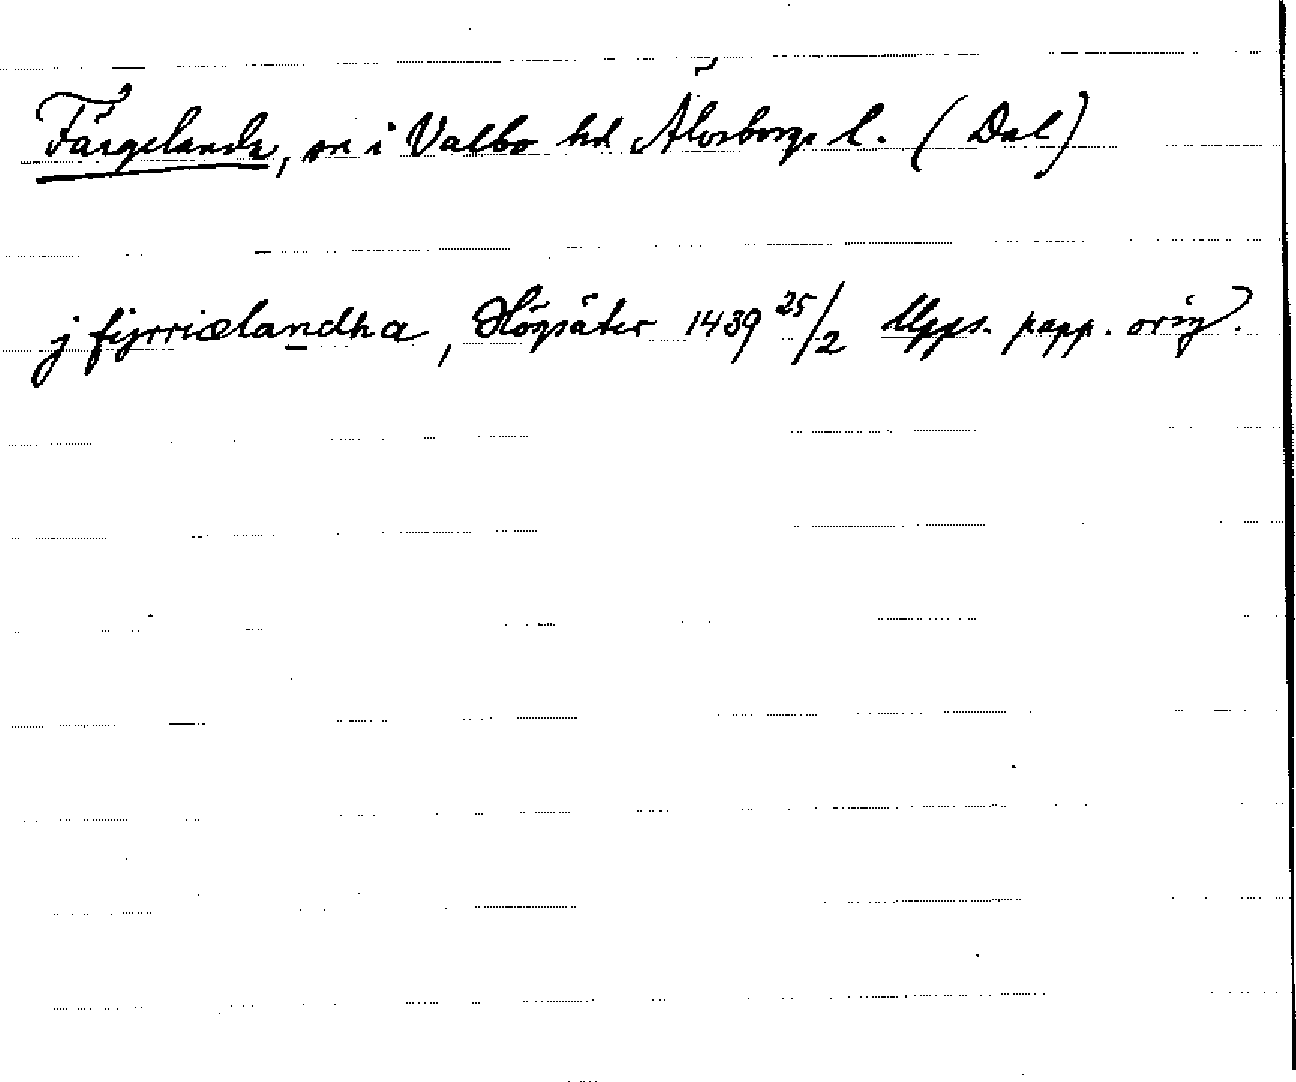 Färgelanda, sn i Valbo hd Älvsborgs l. (Dal)
j fyrriælandha, Högsäter 1439 25/2 Upps. papp. orig.